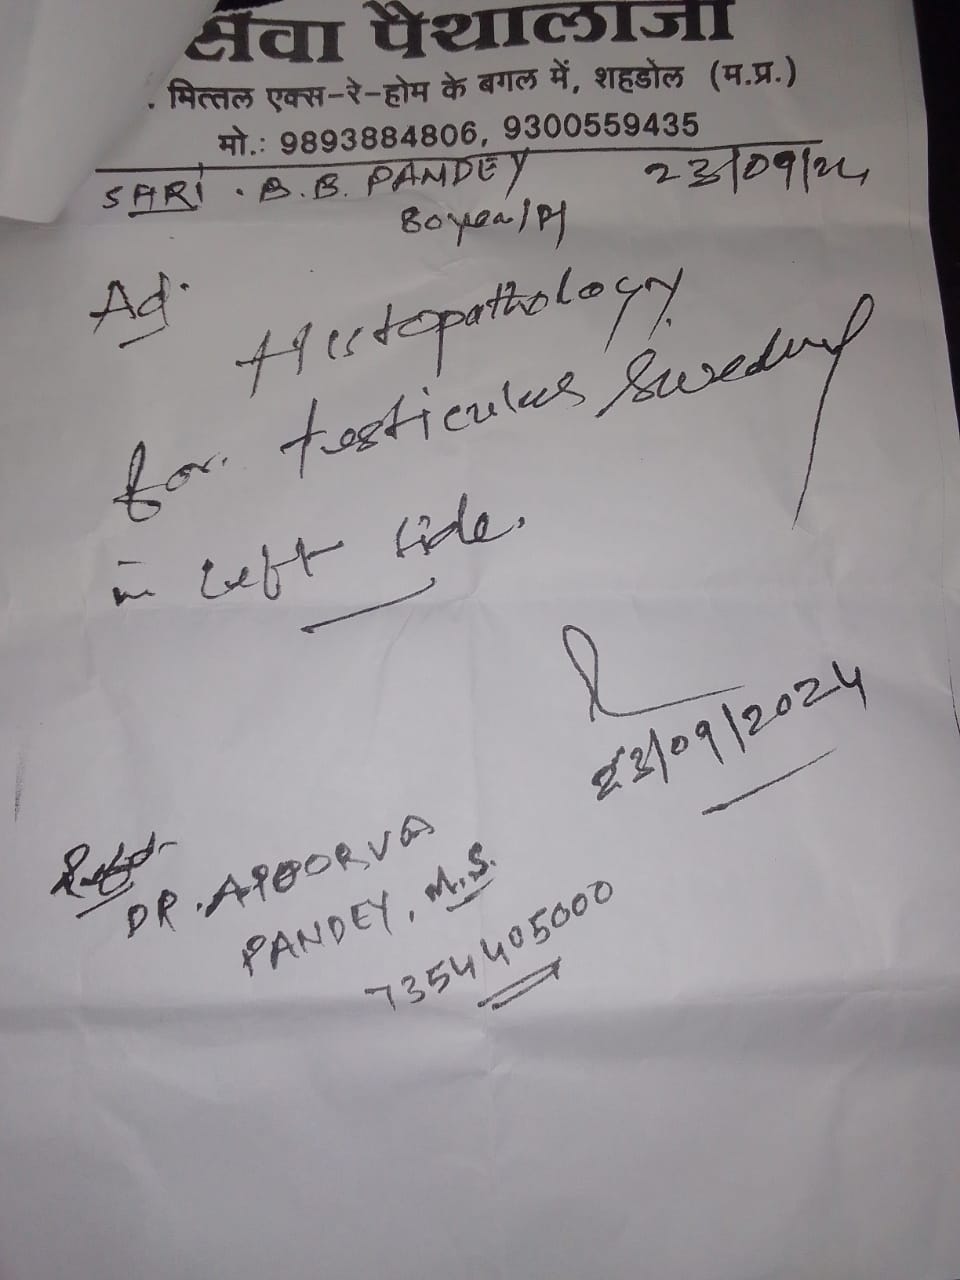 सेवा पैथालाजी
मित्तल एक्स-रे-होम के बगल में, शहडोल (म.प्र.)
मो.: 9893884806, 9300559435
SHRI . B.B. PANDEY 23/09/24
80 year/M
Ad.
Histopathology
for testicular swelling
in left side.
23/09/2024
Refd-
DR. APOORVA
PANDEY, M.S.
7354405000